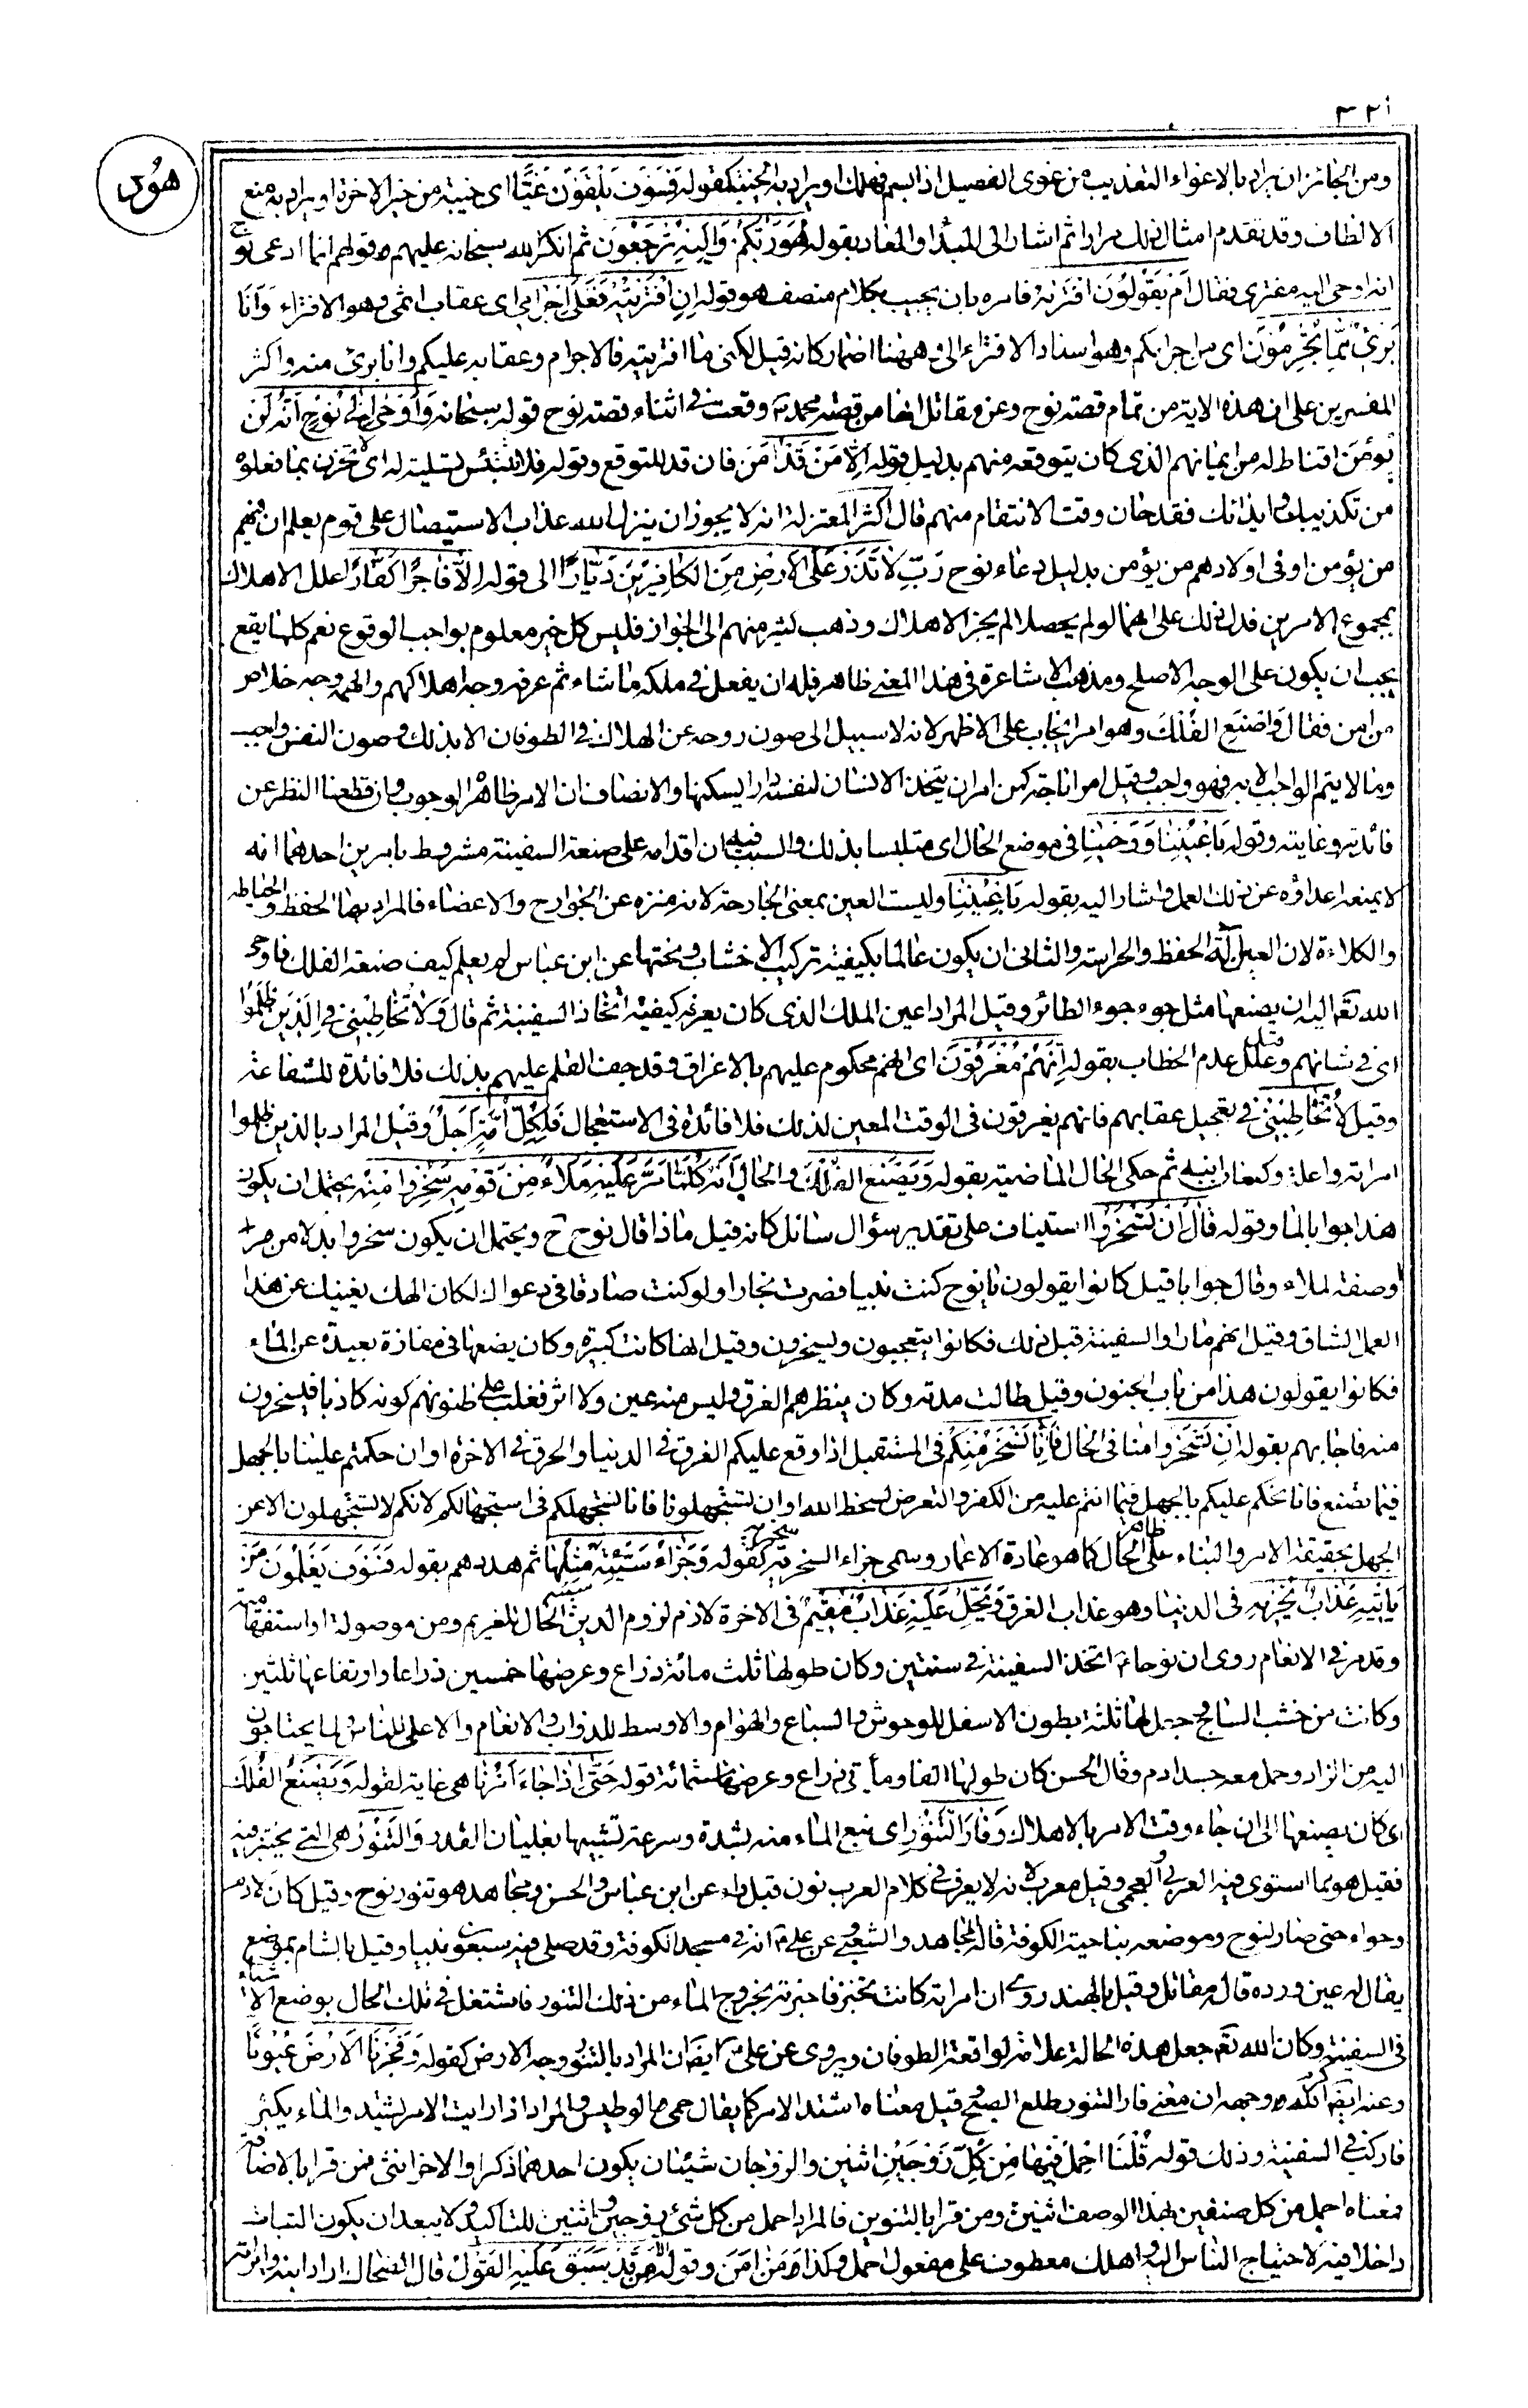 ٣٢١
هود
ومن الجائز ان يراد بالاغواء التعذيب من غوى الفصيل اذا بشم فهلك او يراد به الخيبة كقوله فسوف يلقون غيا اى خيبة من خير الاخرة او يراد به منع
الالطاف وقد تقدم امثال ذلك مرارا ثم اشار الى المبدأ والمعاد بقوله هو ربكم واليه ترجعون ثم انكر الله سبحانه عليهم قولهم انما ادعى نوح
انه اوحى اليه مفترى فقال ام يقولون افتراه فامره بان يجيب بكلام منصف هو قوله ان افتريته فعلى اجرامى اى عقاب اثمى وهو الافتراء وانا
برئ مما تجرمون اى من اجرامكم وهو اسناد الافتراء الى وههنا اضمار كانه قيل لكنى ما افتريته فالاجرام وعقابه عليكم وانا برئ منه واكثر
المفسرين على ان هذه الاية من تمام قصة نوح وعن مقاتل انها من قصة محمد ص وقعت فى اثناء قصة نوح قوله سبحانه واوحى الى نوح انه لن
يؤمن اقناط له من ايمانهم الذى كان يتوقعه منهم بدليل قوله الا من قد امن فان قد للتوقع وقوله فلا تبتئس تسلية له اى لا تحزن بما فعلوه
من تكذيبك وايذائك فقد حان وقت الانتقام منهم قال اكثر المعتزلة انه لا يجوز ان ينزل الله عذاب الاستيصال على قوم يعلم ان فيهم
من يؤمن او فى اولادهم من يؤمن بدليل دعاء نوح رب لا تذر على الارض من الكافرين ديارا الى قوله الا فاجرا كفارا علل الاهلاك
بمجموع الامرين فدل ذلك على انهما لو لم يحصلا لم يجز الاهلاك وذهب كثير منهم الى الجواز فليس كل خير معلوم بواجب الوقوع نعم كلما يقع
يجب ان يكون على الوجه الاصلح ومذهب الاشاعرة فى هذا المعنى ظاهر فله ان يفعل فى ملكه ما شاء ثم عرفه وجه اهلاكهم والهمه وجه خلاص
من امن فقال واصنع الفلك وهو امر ايجاب على الاظهر لانه لا سبيل الى صون روحه عن الهلاك فى الطوفان الا بذلك وصون النفس واجب
وما لا يتم الواجب الا به فهو واجب وقيل امر اباحة كمن امر ان يتخذ الانسان لنفسه دارا يسكنها والانصاف ان الامر ظاهر الوجوب وان قطعنا النظر عن
فائدته وغايته وقوله باعيننا ووحينا فى موضع الحال اى متلبسا بذلك والسبب فيه ان اقدامه على صنعة السفينة مشروط بامرين احدهما انه
لا يمنعه اعداؤه عن ذلك العمل واشار اليه بقوله باعيننا وليست العين بمعنى الجارحة لانه منزه عن الجوارح والاعضاء فالمراد بهما الحفظ والحياطه
والكلاءة لان العين آلة الحفظ والحراسة والثانى ان يكون عالما بكيفية تركيب الاخشاب ونحتها عن ابن عباس لم يعلم كيف صنعة الفلك فاوحى
الله تعه اليه ان يصنعها مثل جوء جوء الطائر وقيل المراد اعين الملك الذى كان يعرفه كيفية اتخاذ السفينة ثم قال ولا تخاطبنى فى الذين ظلموا
اى فى شانهم وعلل عدم الخطاب بقوله انهم مغرقون اى انهم محكوم عليهم بالاغراق وقد جف القلم عليهم بذلك فلا فائدة للشفاعة
وقيل لا تخاطبنى فى تعجيل عقابهم فانهم يغرقون فى الوقت المعين لذلك فلا فائدة فى الاستعجال فلكل امة اجل وقيل المراد بالذين ظلموا
امراته واعلة وكنعان ابنه ثم حكى الحال الماضية بقوله ويصنع الفلك والحال انه كلما مر عليه ملاء من قومه سخروا منه يحتمل ان يكون
هذا جوابا لما وقوله قال ان تسخروا استيناف على تقدير سؤال سائل كانه قيل ماذا قال نوح ح ويحتمل ان يكون سخروا بدلا من مر
او صفة لملاء وقال جوابا قيل كانوا يقولون يا نوح كنت نبيا فصرت نجارا ولو كنت صادقا فى دعواك لكان الهك يغنيك عن هذا
العمل الشاق وقيل انهم ما راوا السفينة قبل ذلك فكانوا يتعجبون ويسخرون وقيل انها كانت كبيرة وكان يضعها فى مفازة بعيدة عن الماء
فكانوا يقولون هذا من باب الجنون وقيل طالت مدته وكان ينظرهم الغرق وليس منه عين ولا اثر فغلب على ظنونهم كونه كاذبا فيسخرون
منه فاجابهم بقوله ان تسخروا منا فى الحال فانا نسخر منكم فى المستقبل اذا وقع عليكم الغرق فى الدنيا والحرق فى الاخرة او ان حكمتم علينا بالجهل
فيما نصنع فانا نحكم عليكم بالجهل فيما انتم عليه من الكفر والتعرض لسخط الله او ان تستجهلونا فانا نستجهلكم فى استجهالكم لانكم لا تستجهلون الا عن
الجهل بحقيقة الامر والبناء على ظاهر الحال كما هو عادة الاغمار وسمى جزاء السخرية سخرية كقوله وجزاء سيئة سيئة مثلها ثم هددهم بقوله فسوف يعلمون من
ياتيه عذاب يخزيه فى الدنيا وهو عذاب الغرق ويحل عليه عذاب مقيم فى الاخرة لازم لزوم الدين الحال للغريم ومن موصولة او استفهامية
وقد مر فى الانعام روى ان نوحا ع اتخذ السفينة فى سنتين وكان طولها ثلث مائة ذراع وعرضها خمسين ذراعا وارتفاعها ثلثين
وكانت من خشب الساج وجعل لها ثلثة بطون الاسفل للوحوش والسباع والهوام والاوسط للدواب والانعام والاعلى للناس لما يحتاجون
اليه من الزاد وحمل معه جسد ادم وقال الحسن كان طولها الفا ومأتى ذراع وعرضها ستمائة قوله حتى اذا جاء امرنا هى غاية لقوله ويصنع الفلك
اى كان يصنعها الى ان جاء وقت الامر بالاهلاك وفار التنور اى نبع الماء منه بشدة وسرعة تشبيها بغليان القدر والتنور هى التى يختبز فيه
فقيل هو مما استوى فيه العربى والعجمى وقيل معرب لانه لا يعرف فى كلام العرب نون قبل راء عن ابن عباس والحسن ومجاهد هو تنور نوح وقيل كان لادم
وحواء حتى صار لنوح وموضعه بناحية الكوفة قاله مجاهد والشعبى وعن على ع انه فى مسجد الكوفة وقد صلى فيه سبعون نبيا وقيل بالشام بموضع
يقال له عين وردة قال مقاتل وقيل بالهند روى ان امراته كانت تخبز فاخبرته بخروج الماء من ذلك التنور فاشتغل فى تلك الحال بوضع الاشياء
فى السفينة وكان الله تعه جعل هذه الحالة علامة لواقعة الطوفان ويروى عن على ع ايضا ان المراد بالتنور وجه الارض كقوله وفجرنا الارض عيونا
وعنه ايضا وجهه ان معنى فار التنور طلع الصبح وقيل معناه اشتد الامر كما يقال حمى الوطيس والمراد اذا رايت الامر يشتد والماء يكثر
فاركب فى السفينة وذلك قوله قلنا احمل فيها من كل زوجين اثنين والزوجان شيئان يكون احدهما ذكرا والاخر انثى فمن قرا بالاضافة
فمعناه احمل من كل صنفين بهذا الوصف اثنين ومن قرا بالتنوين فالمراد احمل من كل شئ زوجين واثنين للتاكيد ولا يبعد ان يكون النبات
داخلا فيه لاحتياج الناس اليه واهلك معطوف على مفعول احمل وكذا ومن امن وقوله الا من سبق عليه القول قال الضحاك اراد ابنه وامراته